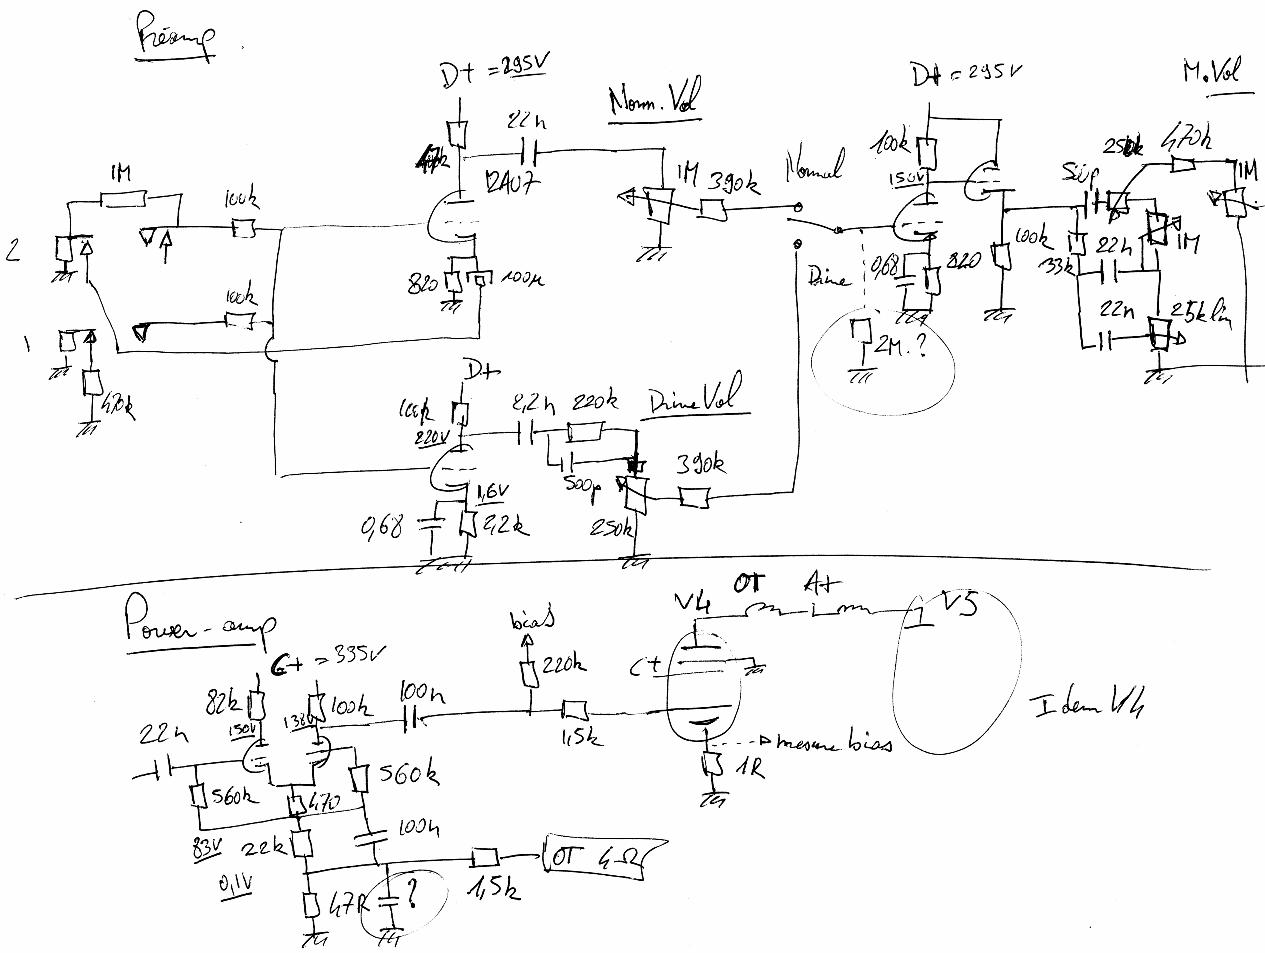 Préamp
D+ = 295V
22n
Norm. Vol
12AU7
1M
100k
2
100k
1
470k
820
100µ
1M
390k
Normal
Drive
D+ = 295V
100k
150V
0,68
820
100k
2M. ?
M. Vol
500p
250k
470k
1M
33k
22n
1M
22n
25k lin
D+
100k
220V
2,2n
220k
Drive Vol
500p
390k
250k
1,6V
0,68
2,2k
Power-amp
G+ = 335V
82k
150V
138V
100k
100n
22n
560k
470
560k
83V
22k
100n
0,1V
47R
?
1,5k
OT 4Ω
bias
220k
1,5k
V4
OT
A+
V5
C+
mesure bias
1R
Idem V4